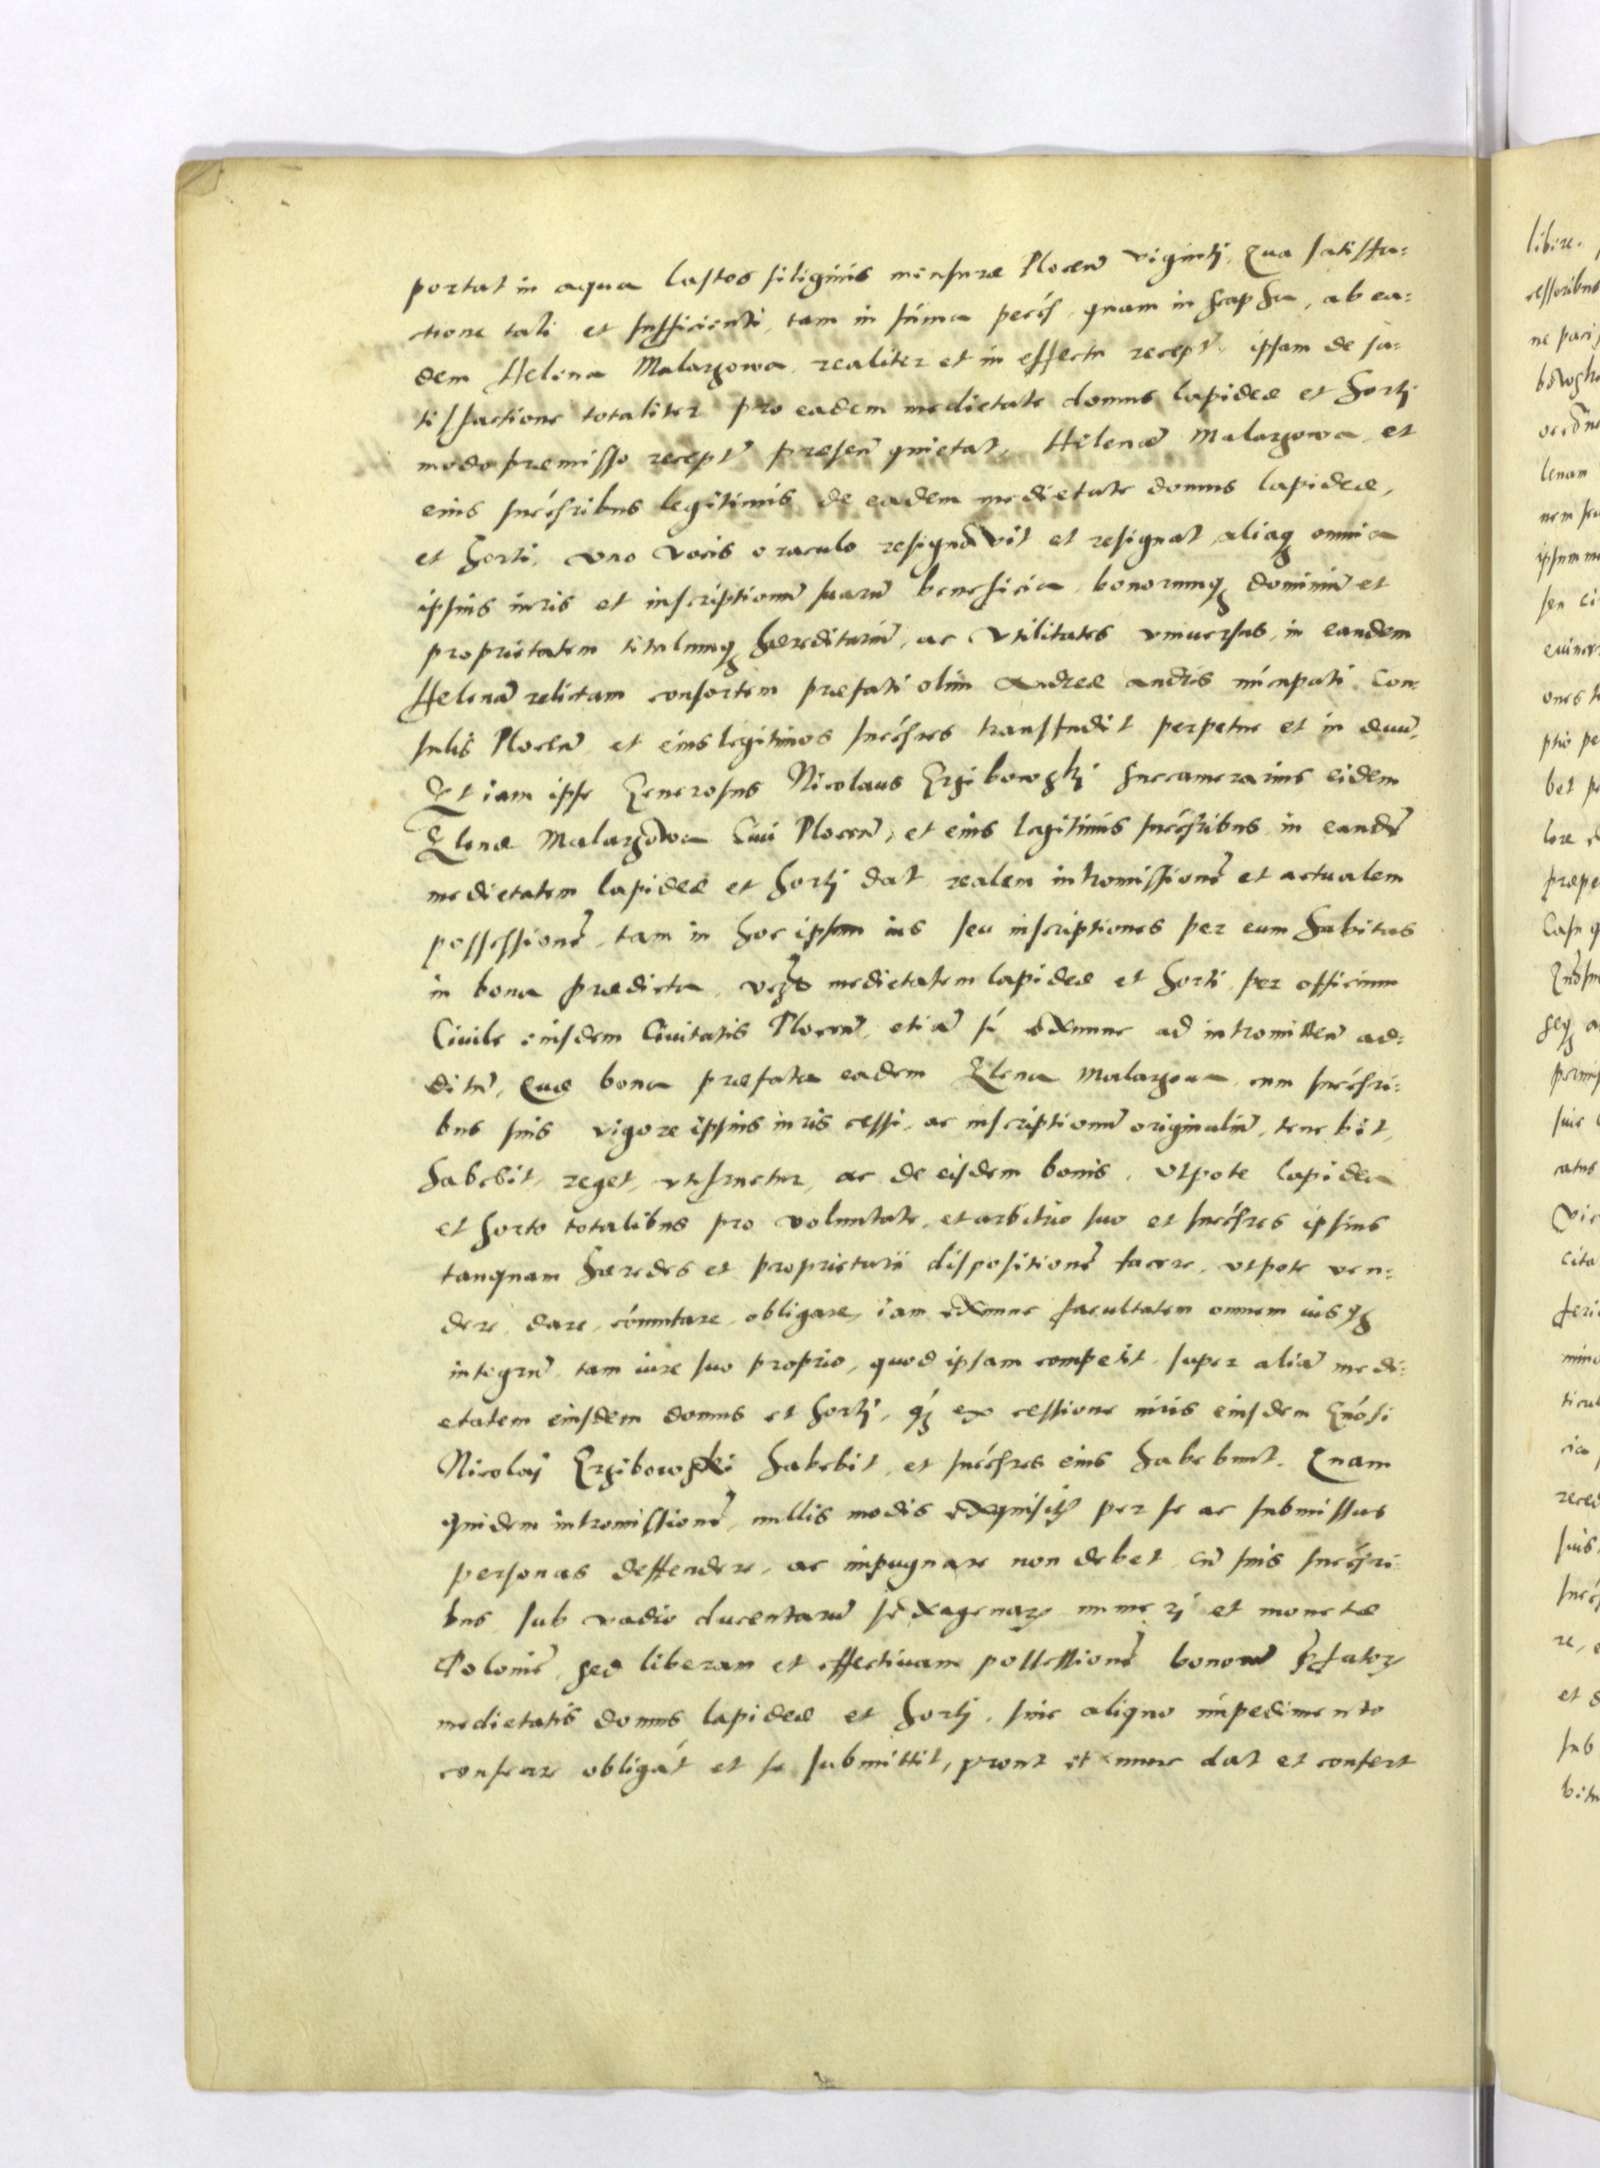 portat in aqua lastos siliginis mensurae Plocen̄ viginti, Qua satisffa-
ctione tali et sufficienti, tam in sum̄a pecc̄s, quam in scapha, ab ea-
dem Helena Malargowa realiter et in effectu recept̄, ipsam de sa-
tisfactione totaliter pro eadem medietate domus lapideae et horti
modo premisso recept̄ presen̄ quietat, Helenae Malargowa et
eius succ̄ssribus legitimis de eadem medietate domus lapideae,
et horti, vno vocis oraculo resignavit et resignat, aliaq3 omnia
ipsius iuris et inscriptionū suarū beneficia, bonorumq3 dominiū et
proprietatem titulumq3 haereditariū, ac vtilitates vniuersas, in eandem
Helenā relictam consortem praefati olim Andreae Andris nūcupati Con-
sulis Plocen̄ et eius legitimos succ̄ssres transfudit perpetue et in aevū,
Et iam ipse Generosus Nicolaus Grzibowski Succamerarius eidem
Elenae Malargowa Ciui Plocen̄, et eius legitimis succ̄ssribus in eandē
medietatem lapideae et horti dat realem intromissionē et actualem
possessionē, tam in hoc ipsum ius seu inscriptiones per eum habitas
in bona praedicta, medietatem lapideae et horti per officium
Ciuile eiusdem Ciuitatis Plocen̄, etiā si exnunc ad intromitten̄ ad-
ditū, Quae bona praefata eadem Elena Malargowa cum succ̄ssri-
bus suis vigore ipsius iuris cessi, ac inscriptionū originaliū, tenebit,
habebit, reget, vtifruetur, ac de eisdem bonis, vtpote lapidea
et horto totalibus pro voluntate, et arbitrio suo et succ̄ssres ipsius
tanquam haeredes et proprietarii dispositionē facere, vtpote ven-
dere, dare, cōmutare, obligare, iam exnunc facultatem omnem iusq3
integrū, tam iure suo proprio, quod ipsam competit, super aliā medi-
etatem eiusdem domus et horti, q3 ex cessione iuris eiusdem Gn̄osi
Nicolai Grzibowski habebit, et succ̄ssres eius habebunt. Quam
quidem intromissionē, nullis modis exquisitis per se ac submissas
personas deffendere, ac impugnare non debet, cū suis succ̄ssri-
bus, sub vadio ducentarū sexagenarꝫ numeri et monetae
Poloniē, sed liberam et effectiuam possessionē bonorū p̄fatorꝫ
medietatis domus lapideae et horti, sine aliquo impedimento
conferre obligāt et se submittit, prout et exnunc dat et confert